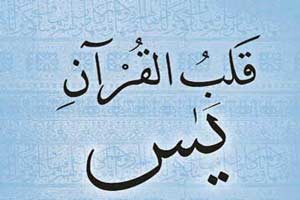 قَلبُ القُرْآنِ
يس